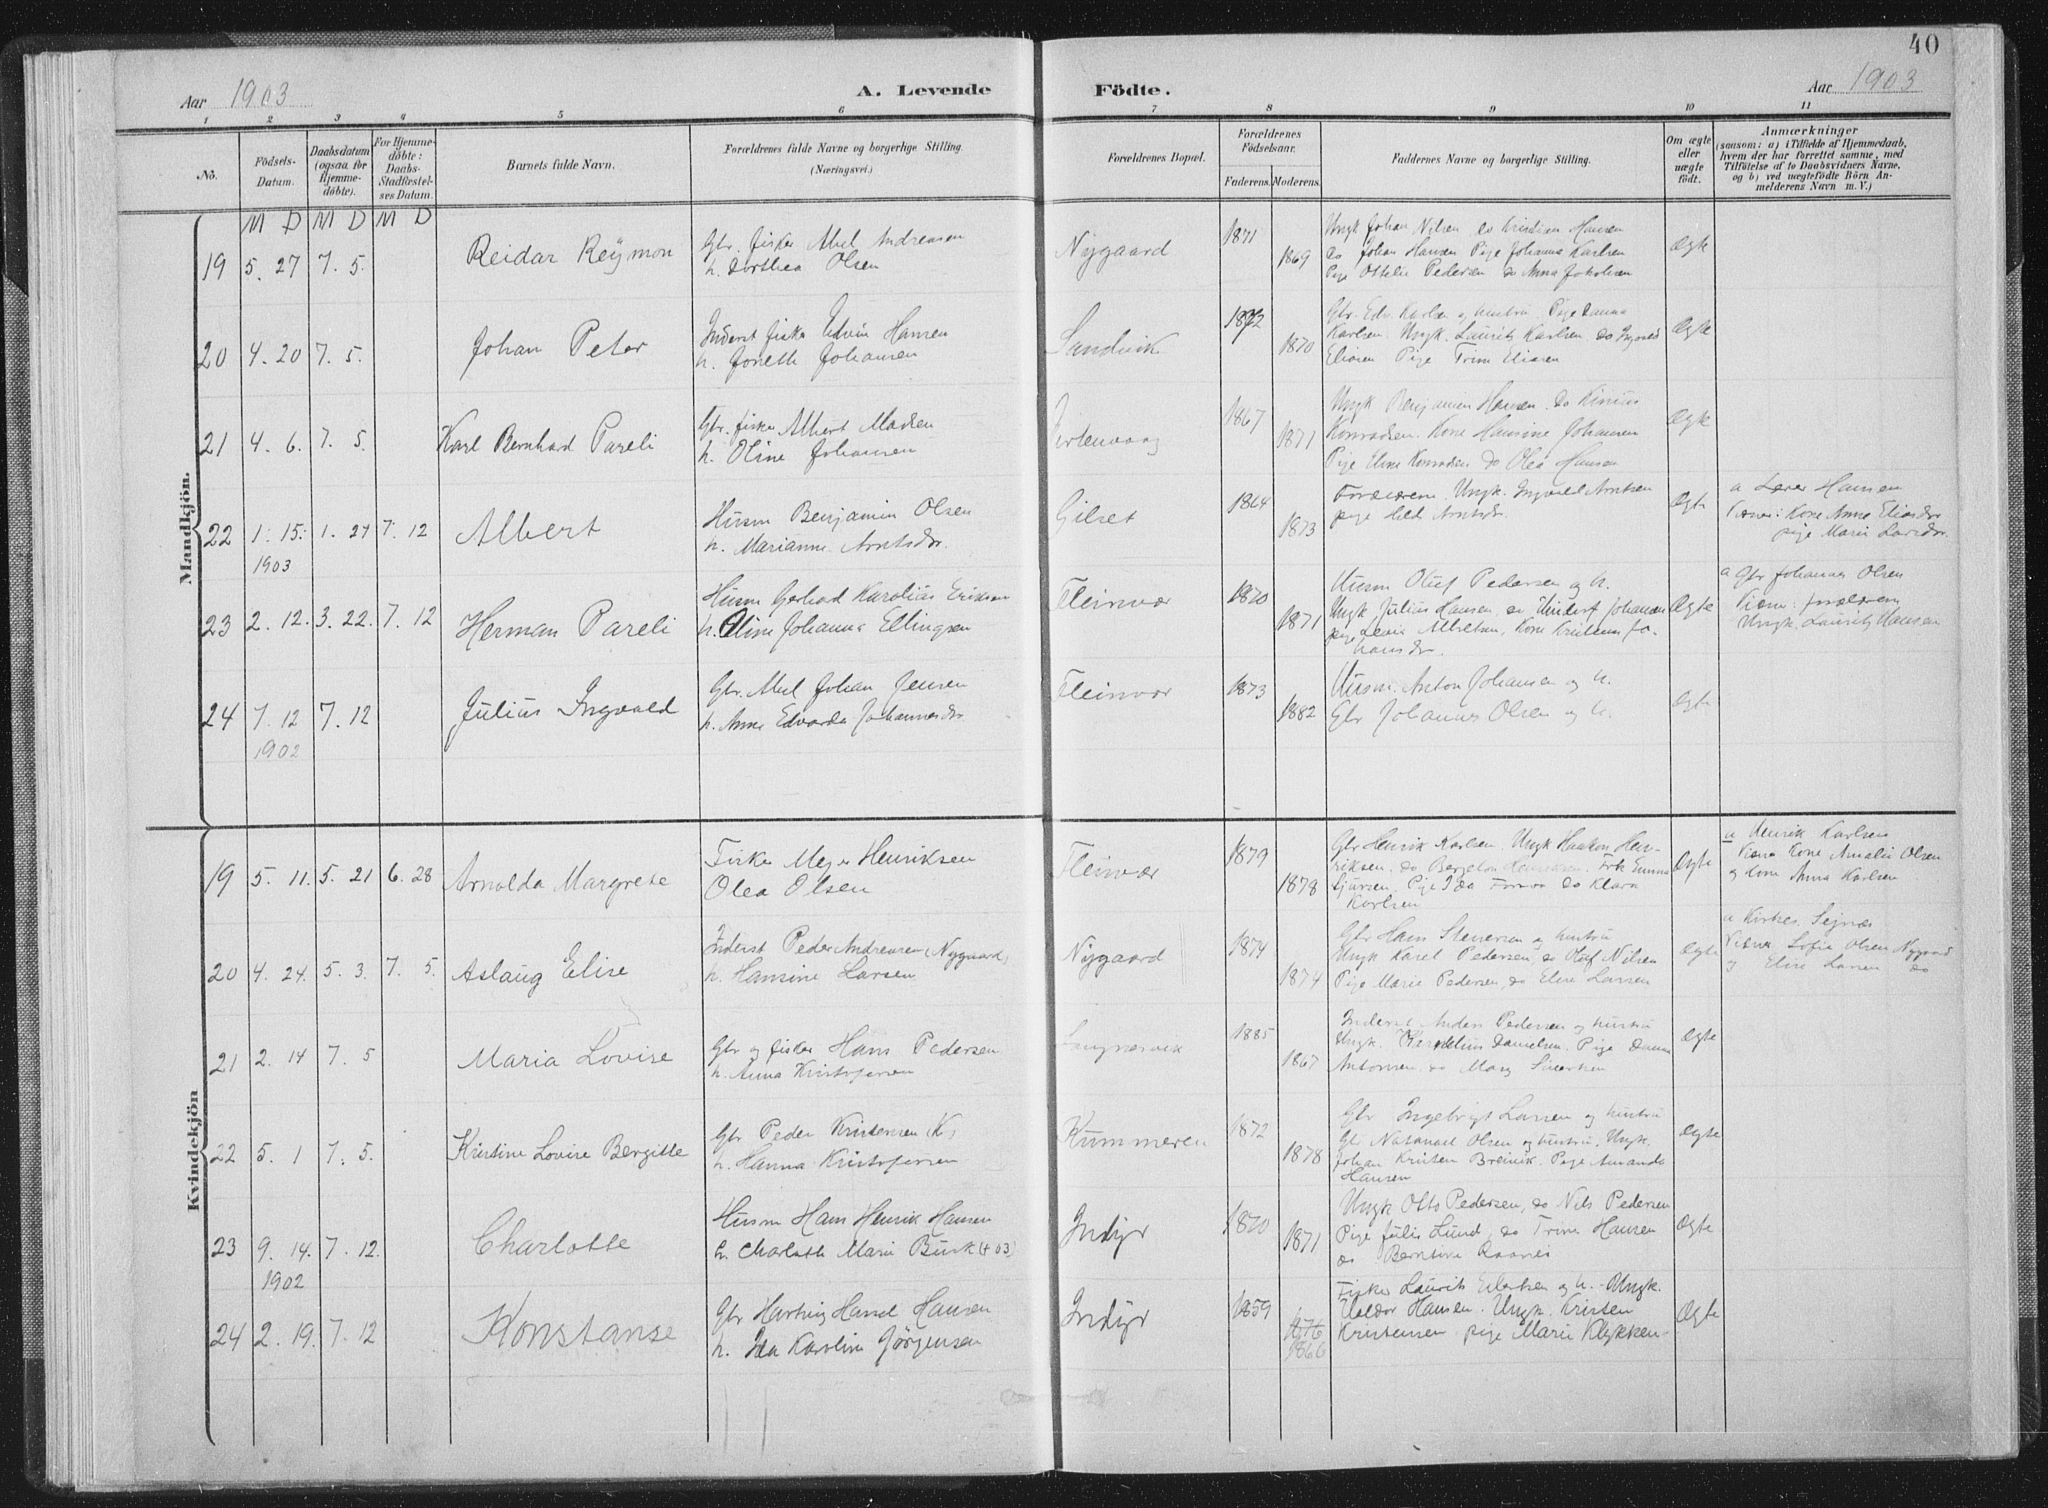 40
Aar 1903
A. Levende
Födte.
Aar 1903
1 2 3 4 5 6 7 8 9 10 11
No.
Födsels-
Datum.
Daabsdatum
(ogsaa for
Hjemme-
döbte).
For Hjemme-
döbte:
Daabs-
Stadfæstel-
ses Datum.
Barnets fulde Navn.
Forældrenes fulde Navne og borgerlige Stilling.
(Næringsvei.)
Forældrenes Bopæl.
Forældrenes
Födselsaar.
Faderens.
Moderens.
Faddernes Navne og borgerlige Stilling.
Om ægte
eller
uægte
födt.
Anmærkninger
(saasom: a) i Tilfælde af Hjemmedaab,
hvem der har forrettet samme, med
Tilföielse af to Daabsvidners Navne,
og b) ved uægtefödte Börn An-
melderens Navn m. V.)
M D M D M D
Mandkjön.
19 5. 27 7. 5. Reidar Reÿmon
Gbr. fisker Abel Andreasen
h. Dorthea Olsen
Nygaard 1871 1869
Ungk Johan Nilsen do Kristian Hansen
do Johan Hansen Pige Johanna Karlsen
Pige Ottelie Pedersen do Anna Jakobsen
Ægte
20 4. 20 7. 5. Johan Peter
Inderst fisker Edvin Hansen
h. Joneth Johansen
Sandvik 1872 1870
Gbr. Edv. Karlsen og hustru. Pige Danna
Karlsen. Ungk. Laurits Karlsen do
Eliasen Pige Trine Eliasen
Ægte
21 4. 6. 7. 5. Karl Bernhard Pareli
Gbr. fisker Albert Madsen
h. Oline Johansen
1867 1871
Ungk Benjamin Hansen. do
Konradsen. Kone Hansine Johansen
Pige Eline Konradsen do Olea Hansen
Ægte
22 1. 15. 1. 27 7. 12 Albert
1903
Husm Benjamin Olsen
h. Marianne Arntsdr.
Gilset 1864 1873
Forældrene. Ungk. Ingvald Arntsen
pige Arntsdr
Ægte
a Lærer Hansen
Vidner: Kone Anna Eliasdr
pige Marie Larsdr
23 2. 12. 3. 22. 7. 12 Herman Pareli
Husm Gerhard Karolius Eriksen
h. Oline Johanna Ellingsen
Fleinvær 1870 1871
Husm Oluf Pedersen og h.
Ungk Julius Hansen, do Johansen
pige Albertsen, Kone Jo-
hansdr.
Ægte
a Gbr Johannes Olsen
Vidner: forældrene
Ungk. Laurits Hansen
24 7. 12 7. 12 Julius Ingvald
1902
Gbr. Abel Johan Jensen
h. Anne Edvarda Johannesdr
Fleinvær 1873 1882
Husm. Anton Johansen og h.
Gbr Johannes Olsen og h.
Ægte
Kvindekjön
19 5. 11. 5. 21 6. 28 Arnolda Margrete
Fisker Meyer Henriksen
Olea Olsen
Fleinvær 1879 1878
Gbr Henrik Karlsen. Ungk Haakon Hen-
riksen. do Bergeton Henriksen. Frk Emma
Sjursen. Pige Ida do Klara
Karlsen
Ægte
a Henrik Karlsen
Vidner Kone Amalie Olsen
og Kone Anna Karlsen
20 4. 24. 5. 3. 7. 5. Aslaug Elise
Inderst Peder Andreasen (Nygaard)
h. Hansine Larsen
Nygaard 1874 1874
Gbr Hans Steensen og hustru
Ungk Karel Pedersen do Oluf Nilsen
Pige Marie Pedersen, do Elise Larsen
Ægte
a Kirkes.
Vidner Sofie Olsen Nygaard
og Elise Larsen do
21 2. 14 7. 5 Maria Lovise
Gbr og fisker Hans Pedersen
h. Anna Kristofersen
1885 1867
Inderst Anders Pedersen og hustru
Ungk. Danielsen. Pige Danna
Antonsen do
Ægte
22 5. 1 7. 5. Kristine Lovise Bergitte
Gbr Peder Kristensen (K)
h. Hanna Kristofersen
Kummeren 1872 1878
Gbr Ingebrigt Larsen og hustru
Gbr Natanael Olsen og hustru, Ungk.
Johan Kristen Breivik. Pige Amanda
Hansen
Ægte
23 9. 14. 7. 12. Charlotte
1902
Husm Hans Henrik Hansen
h. Charlotte Marie Busk (+ 03)
Indyr 1870 1871
Ungk Otto Pedersen, do Nils Pedersen
Pige Julie Lund, do Trine Hansen
do Berntine
Ægte
24 2. 19. 7. 12 Konstanse
Gbr Hartvig Hansen
h. Ida Karoline Jörgensen
Indyr 1859 1876 1866
Fisker Laurits og h. Ungk.
Valdor Hansen. Ungk. Kristen
Kristensen pige Marie Klykken
Ægte